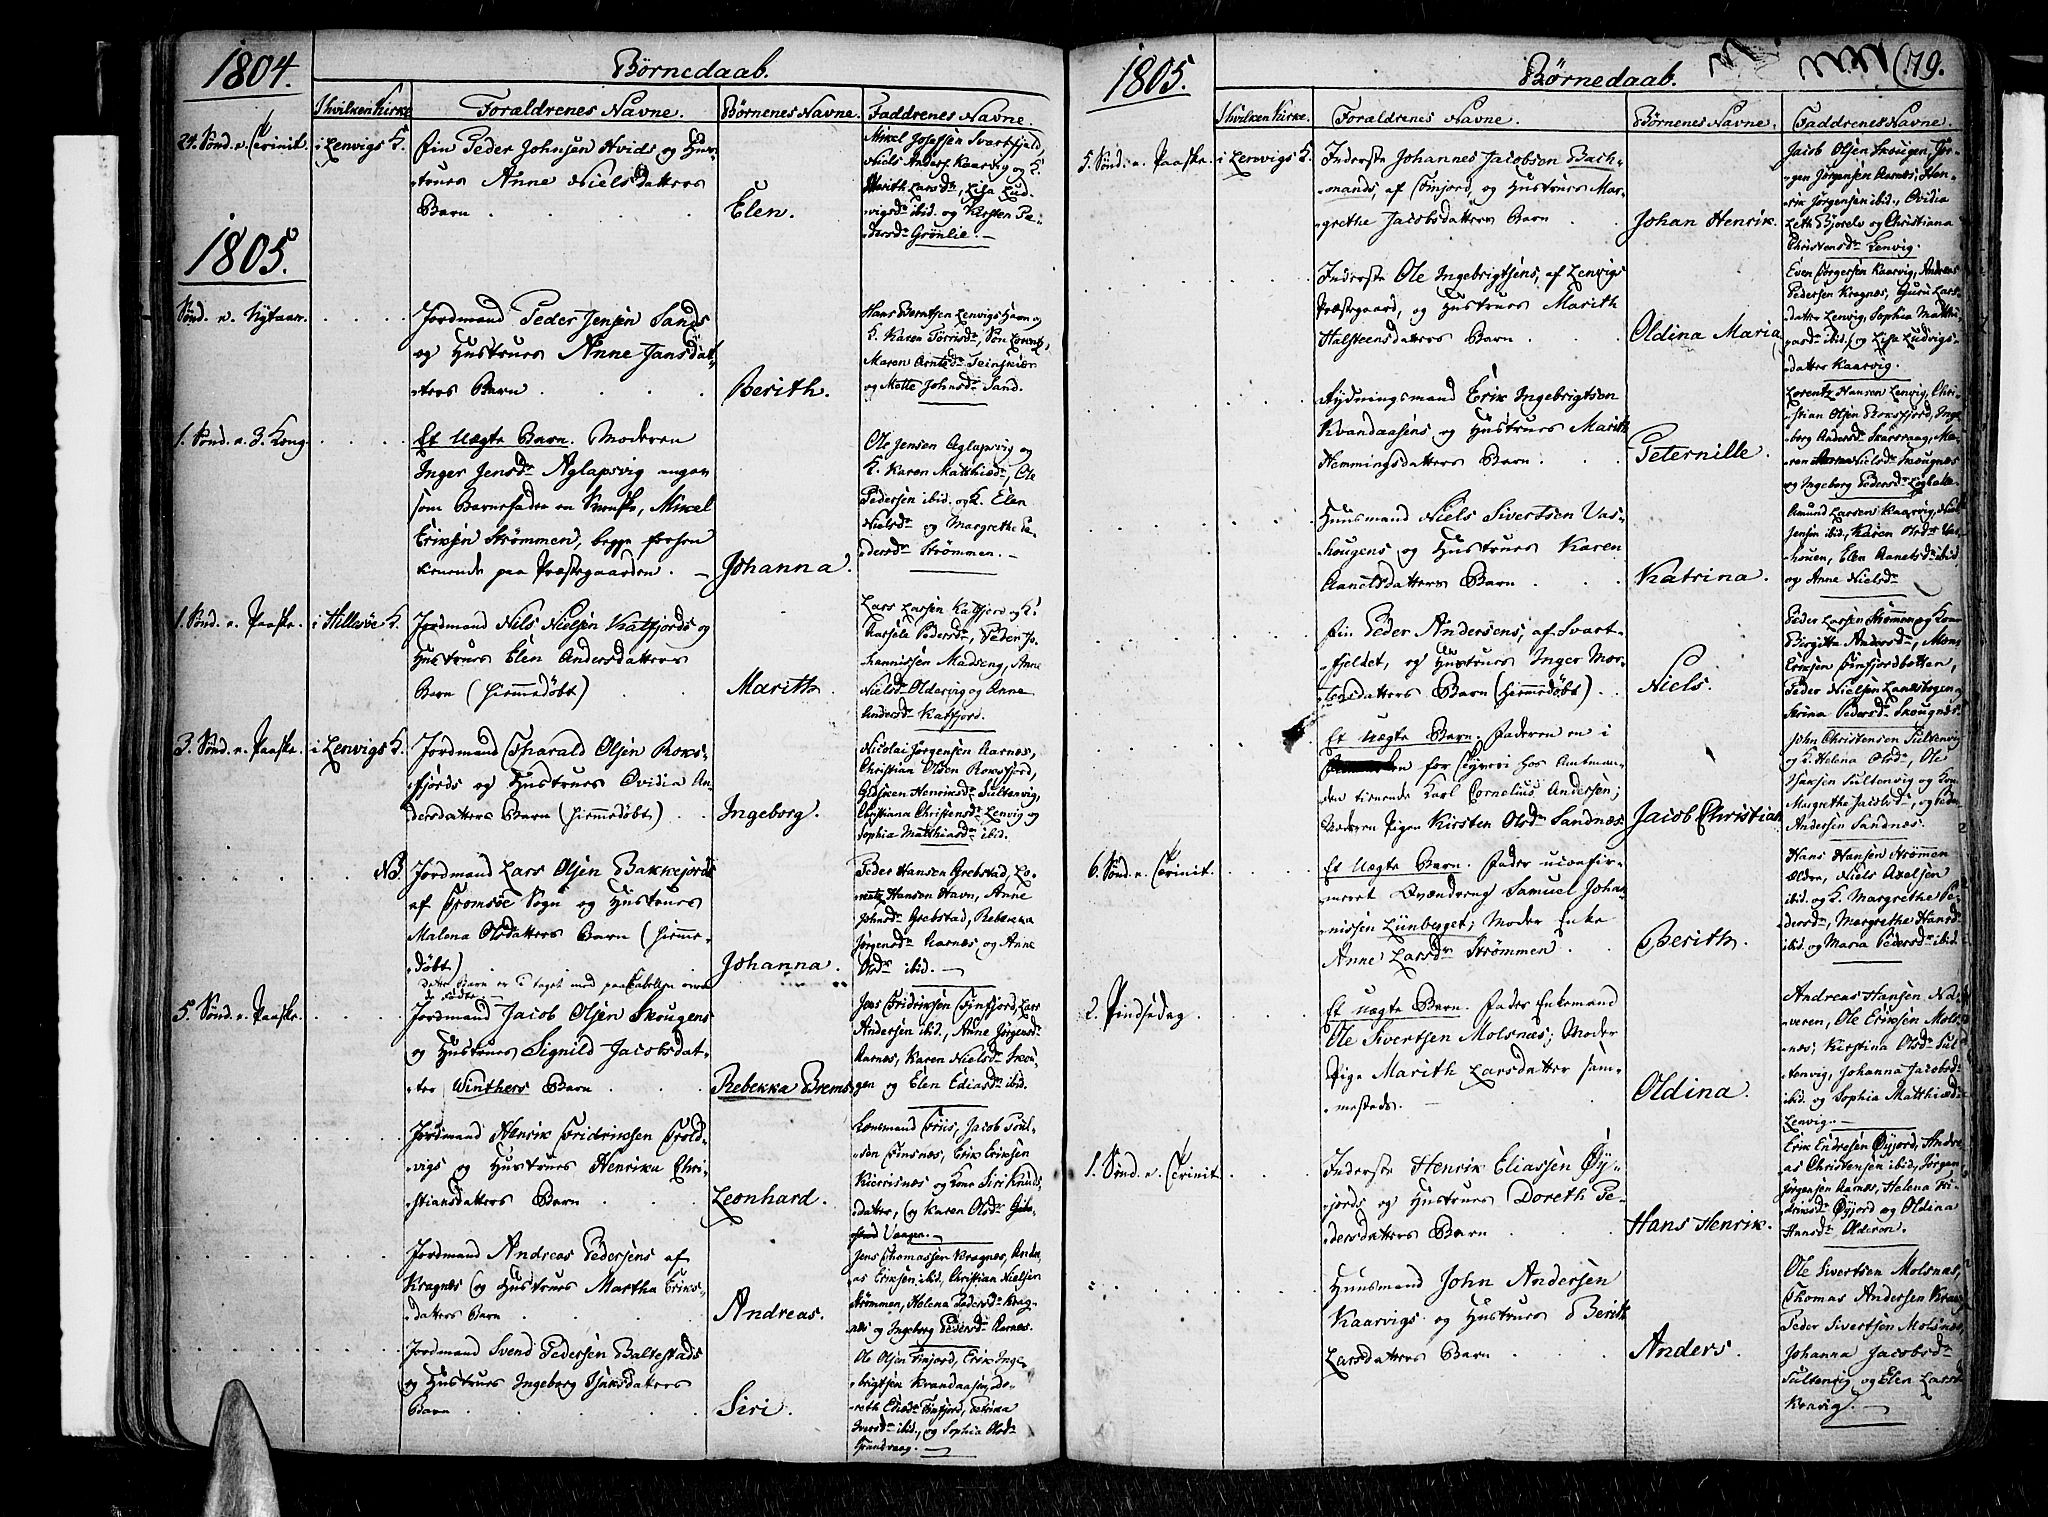 1804.
Börnedaab.
I hvilken Kirke
Forældrenes Navne.
Börnenes Navne.
Faddrenes Navne.
24. Sönd. e. Trinit.
i Lenvigs K.
Fin Peder Johnsen Hvids og Hus-
trues Anne Nielsdatters
Barn
Elen.
Mikel Josefsen Svartfjeld,
Niels Anders. Kaarvig og K.
Marith Larsdr, Lisa Lud-
vigsdr ibid. og Kirsten Pe-
dersdr Grönlie.
1805.
Sönd. e. Nytaar.
Jordmand Peder Jensen Sands
og Hustrues Anne Jansdat-
ters Barn
Berith.
Hans Berntsen Lenvigs Havn og
K. Karen Torrisdr,
Maren Arntsdr
og Mette Johnsdr Sand.
1. Sönd. e. 3. Kong.
Et Uægte Barn. Moderen
Inger Jensdr Aglapsvig angav
som Barnefader en Mikel
Eriksen Strömmen, begge
tienende paa Præstegaarden.
Johanna.
Ole Jensen Aglapsvig og
K. Karen Matthiædr, Ole
Pedersen ibid. og K. Elen
Nielsdr og Margrethe Pe-
dersdr Strömmen.
1. Sönd. e. Paaske.
i Hillesöe K.
Jordmand Nils Nielsen Katfjords og
Hustrues Elen Andersdatters
Barn (hiemmedöbt)
Marith.
Lars Larsen Katfjord og K.
Pedersdr, Peder Jo-
hannissen Madseng, Anne
Nielsdr Oldervig og Anne
Andersdr Katfjord.
3. Sönd. e. Paaske.
i Lenvigs K.
Jordmand Tharald Olsen Roks-
fjords og Hustrues Ovidia An-
dersdatters Barn (hiemmedöbt)
Ingeborg.
Nicolai Jörgensen Aarnæs,
Christian Olsen Roksfjord,
Gidsken Henriksdr Sultenvig,
Christiana Christensdr Lenvig og
Sophia Matthiasdr ibid.
NB.
Jordmand Lars Olsen Bakkejords
af Tromsöe Sogn og Hustrues
Malena Olsdatters Barn (hiemme-
döbt)
Dette Barn er ei taget med paa Tabellen over
de födte.
Johanna.
Peder Hansen Grebstad, Lo-
rentz Hansen Havn, Anne
Johnsdr Grebstad, Rebekka
Jörgensdr Aarnæs og Anne
Olsdr ibid.
5. Sönd. e. Paaske.
Jordmand Jacob Olsen Skougens
og Hustrues Signild Jacobsdat-
ter Winthers Barn
Rebekka Brems.
Jens Fridriksen Finfjord, Lars
Andersen ibid., Anne Jörgensdr
Aarnæs, Karen Nielsdr Skou-
gen og Elen Ediasdr ibid.
Jordmand Henrik Fridriksen Trold-
vigs og Hustrues Henrika Chri-
stiansdatters Barn
Leonhard.
Lensmand Friis, Jacob Poul-
sen Finsnæs, Erik Eriksen
og Kone Siri Knuds-
datter, og Karen Olsdr Gibo-
Vaagen.
Jordmand Andreas Pedersens af
Kragnæs og Hustrues Martha Eriks-
datters Barn
Andreas.
Jens Thomassen Kragnæs, Andre-
as Eriksen ibid., Christian Nielsen
Strömmen, Helena Pedersdr Krag-
næs og Ingeborg Pedersdr Aarnæs.
Jordmand Svend Pedersen Baltestads
og Hustrues Ingeborg Isaksdatters
Barn
Siri.
Ole Olsen Finjord, Erik Inge-
brigtsen Kvandaasen, Do-
reth Ediasdr Finfjord, Petrina
Iversdr ibid., og Sophia Olsdr
Grundvaag.
1805.
Börnedaab.
(79.
I hvilken Kirke.
Forældrenes Navne.
Börnenes Navne.
Faddrenes Navne.
5. Sönd. e. Paaske.
i Lenvigs K.
Inderste Johannes Jacobsen Bach-
mands, af Finjord, og Hustrues Mar-
grethe Jacobsdatters Barn
Johan Henrik.
Jacob Olsen Skougen, Jör-
gen Jörgensen Aarnæs, Hen-
rik Jörgensen ibid., Ovidia
Leth Bjorelv og Christiana
Christensdr Lenvig.
Inderste Ole Ingebrigtsens, af Lenvigs
Præstegaard, og Hustrues Marith
Halsteensdatters Barn
Oldina Maria.
Even Törgersen Kaarvig, Andreas
Pedersen Kragnæs, Guru Lars-
datter Lenvig, Sophia Matthi-
asdr ibid. og Lisa Ludvigs-
datter Kaarvig.
Rydningsmand Erik Ingebrigtsen
Kvandaasens og Hustrues Marith
Hemmingsdatters Barn
Peternille.
Lorentz Hansen Lenvig, Chri-
stian Olsen Roksfjord, Inge-
berg Andersdr Skarsvaag, Ma-
ren Nielsdr Skougnæs
og Ingeborg Pedersdr
Huusmand Niels Sivertsen Vas-
hougens og Hustrues Karen
Aanetsdatters Barn
Katrina.
Amund Larsen Kaarvig, Niels
Jensen ibid, Karen Olsdr Vas-
houen, Elen Aanetsdr ibid
og Anne Nielsdr
Fin Peder Andersens, af Svart-
fjeldet, og Hustrues Inger Mor-
tensdatters Barn (hiemmedöbt)
Niels.
Peder Larsen Strömmen og Kone
Birgitta Andersdr, Mons
Eriksen Finfjordbotten,
Peder Nielsen Lanesbogen og
Strina Pedersdr Skougnæs.
Et Uægte Barn. Faderen en i
for Tyveri hos Amtman-
den tienende Karl Cornelius Andersen;
Moderen Pigen Kirsten Olsdr Sandnæs.
Jacob Christian.
John Christensen Sultenvig
og K. Helena Olsdr, Ole
Hansen Sultenvig og Kone
Margrethe Jacobsdr, og Peder
Andersen Sandnæs.
6. Sönd. e. Trinit.
Et Uægte Barn. Fader uconfir-
meret Qvændreng Samuel Johan-
nissen Lünberget; Moder Enke
Anne Larsdr Strömmen
Berith.
Hans Hansen Strömmen
Ældre, Niels Axelsen
ibid. og K. Margrethe Pe-
dersdr, Margrethe Hansdr
ibid. og Maria Pedersdr ibid.
2. Pindsedag.
Et Uægte Barn. Fader Enkemand
Ole Sivertsen Molsnæs; Moder
Pige Marith Larsdatter sam-
mesteds.
Oldina.
Andreas Hansen Na-
veren, Ole Eriksen Mols-
næs; Kirstina Olsdr Sul-
tenvig, Johanna Jacobsdr
ibid. og Sophia Matthiædr
Lenvig.
1. Sönd. e. Trinit.
Inderste Henrik Eliassen Öy-
jords og Hustrues Doreth Pe-
dersdatters Barn
Hans Henrik.
Erik Endresen Öyjord, Andre-
as Christensen ibid, Jörgen
Jörgensen Aarnæs, Helena Hi-
driksdr Öyjord og Oldina
Hansdr Olderön.
Huusmand John Andersen
Kaarvigs og Hustrues Berith
Larsdatters Barn
Anders.
Ole Sivertsen Molsnæs,
Thomas Andersen Kraag
Peder Sivertsen Molsnæs,
Johanna Jacobsdr
Sultenvig og Elen Larsdr
Kravig.